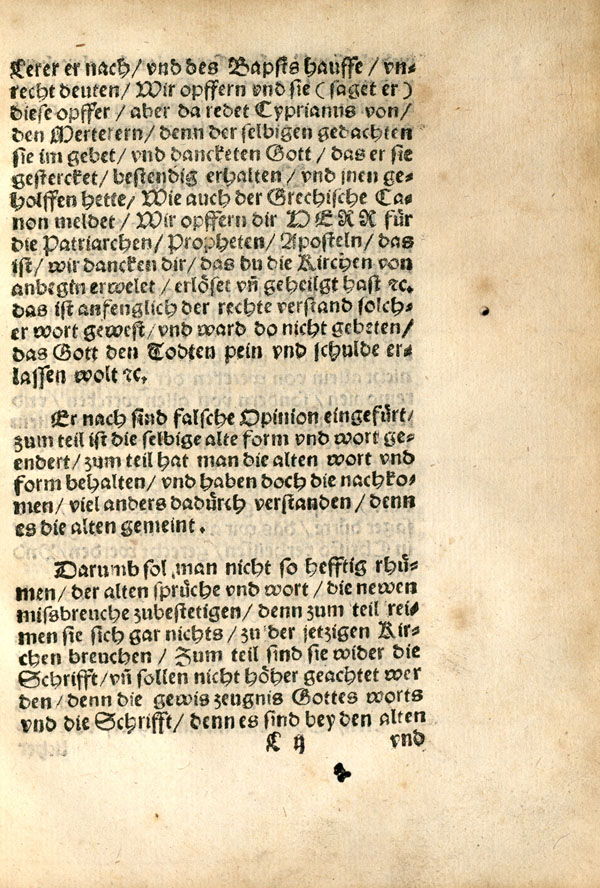 Lerer er nach/ vnd des Bapsts hauffe / vn⸗
recht deuten/ Wir opffern vnd sie ( saget er )
diese opffer / aber da redet Cyprianus von/
den Merterern/ denn der selbigen gedachten
sie im gebet/ vnd dancketen Gott / das er sie
gestercket/ bestendig erhalten / vnd jnen ge⸗
holffen hette/ Wie auch der Grechische Ca⸗
non meldet/ Wir opffern dir HERR für
die Patriarchen/ Propheten/ Aposteln/ das
ist/ wir dancken dir/ das du die Kirchen von
anbegin erwelet / erlöset vñ geheiligt hast ꝛc.
das ist anfenglich der rechte verstand solch⸗
er wort gewest/ vnd ward do nicht gebeten/
das Gott den Todten pein vnd schulde er⸗
lassen wolt ꝛc.
Er nach sind falsche Opinion eingefürt/
zum teil ist die selbige alte form vnd wort ge⸗
endert/ zum teil hat man die alten wort vnd
form behalten/ vnd haben doch die nachko⸗
men/ viel anders dadürch verstanden/ denn
es die alten gemeint.
Darumb sol man nicht so hefftig rhü⸗
men/ der alten sprüche vnd wort / die newen
missbreuche zubestetigen/ denn zum teil rei⸗
men sie sich gar nichts/ zu der jetzigen Kir⸗
chen breuchen / Zum teil sind sie wider die
Schrifft/ vñ sollen nicht höher geachtet wer
den/ denn die gewis zeugnis Gottes worts
vnd die Schrifft/ denn es sind bey den alten
L ij vnd